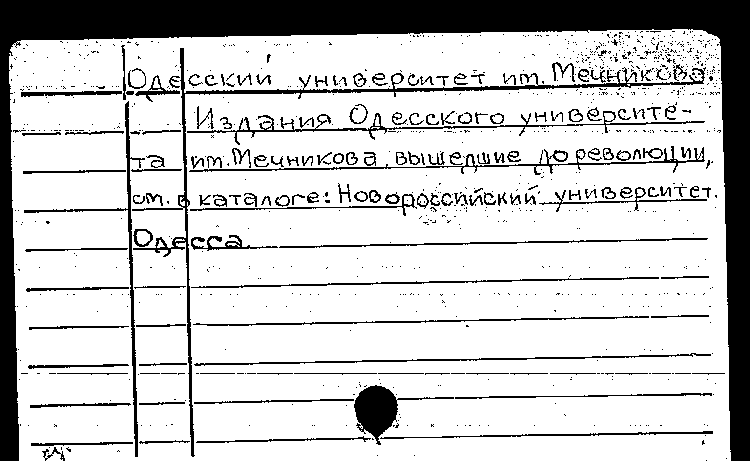 Одесский университет им. Мечникова
Издания Одесского университе-
та им. Мечникова, вышедшие до революции,
см. в каталоге: Новороссийский университет.
Одесса.